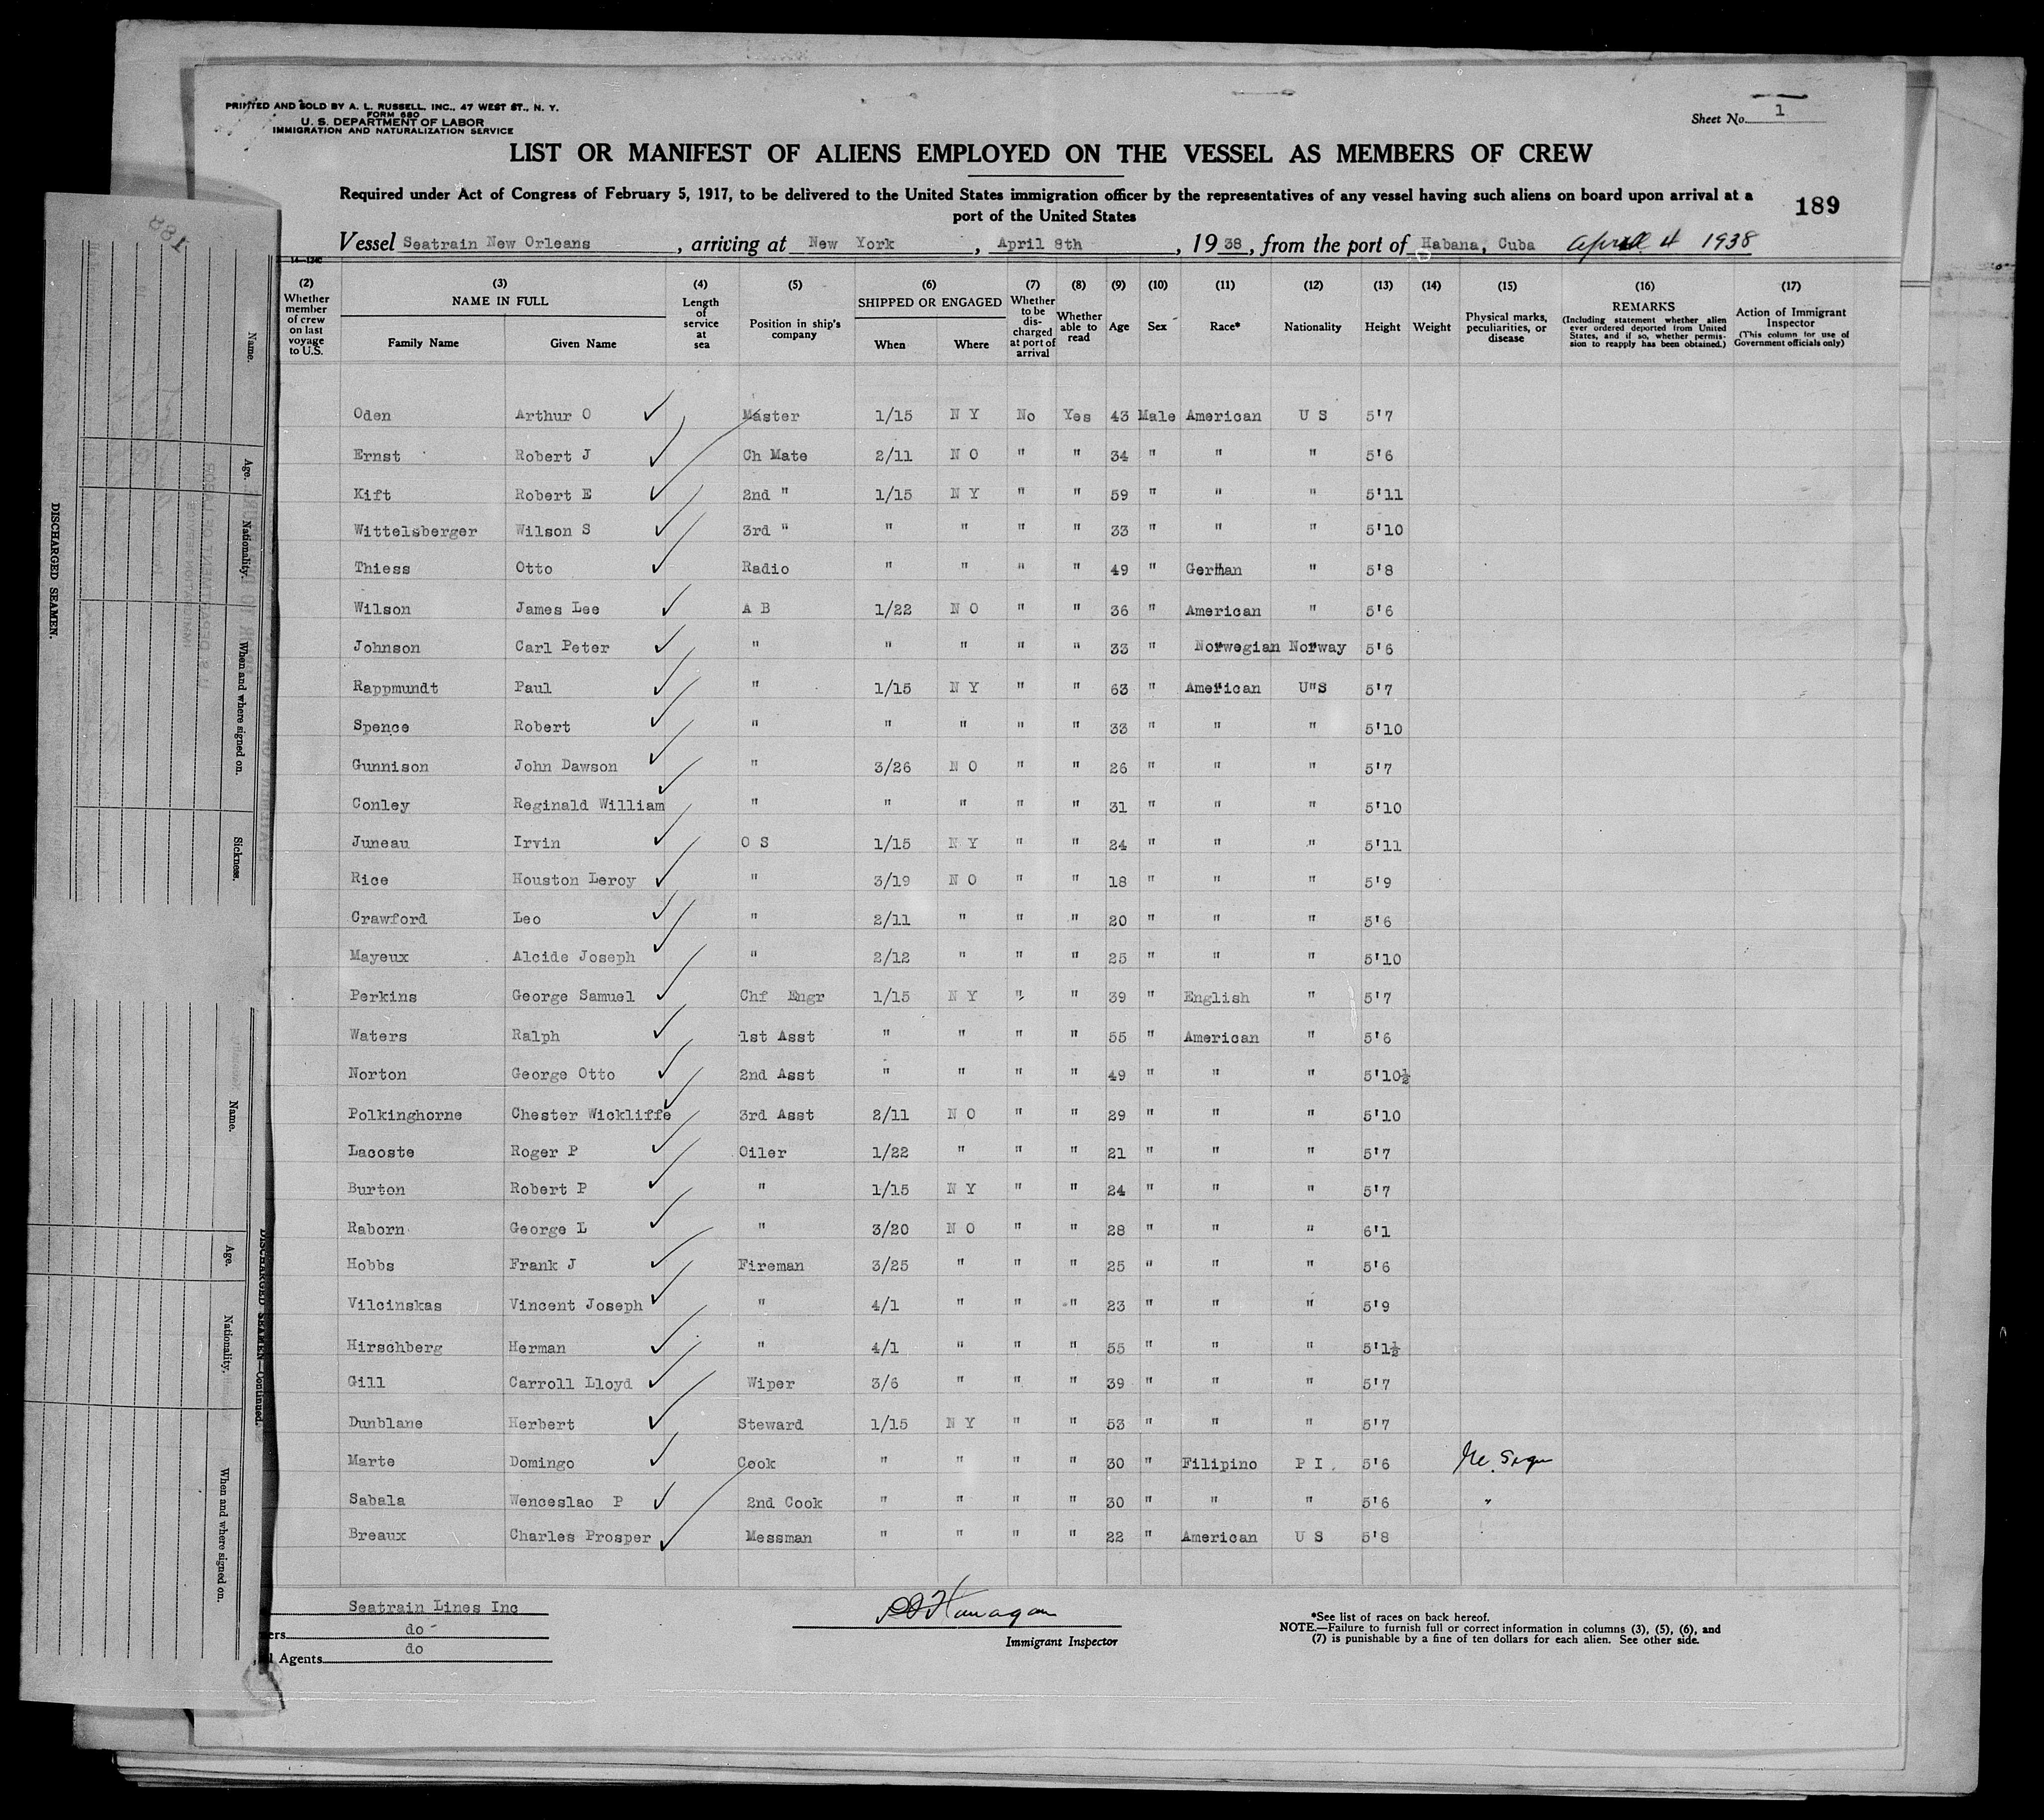 PRINTED AND SOLD BY A. L. RUSSELL, INC., 47 WEST ST., N. Y.
FORM 680
U. S. DEPARTMENT OF LABOR
IMMIGRATION AND NATURALIZATION SERVICE
Sheet No. 1
LIST OR MANIFEST OF ALIENS EMPLOYED ON THE VESSEL AS MEMBERS OF CREW
Required under Act of Congress of February 5, 1917, to be delivered to the United States immigration officer by the representatives of any vessel having such aliens on board upon arrival at a
port of the United States
189
Vessel Seatrain New Orleans, arriving at New York, April 8th, 1938, from the port of Habana, Cuba April 4 1938
(2) (3) (4) (5) (6) (7) (8) (9) (10) (11) (12) (13) (14) (15) (16) (17)
Whether member of crew on last voyage to U.S. NAME IN FULL Family Name Given Name Length of service at sea Position in ship's company SHIPPED OR ENGAGED When Where Whether to be discharged at port of arrival Whether able to read Age Sex Race* Nationality Height Weight Physical marks, peculiarities, or disease REMARKS (Including statement whether alien ever ordered deported from United States, and if so, whether permission to reapply has been obtained.) Action of Immigrant Inspector (This column for use of Government officials only)
Oden Arthur O Master 1/15 N Y No Yes 43 Male American U S 5'7
Ernst Robert J Ch Mate 2/11 N O " " 34 " " " 5'6
Kift Robert E 2nd " 1/15 N Y " " 59 " " " 5'11
Wittelsberger Wilson S 3rd " " " " " 33 " " " 5'10
Thiess Otto Radio " " " " 49 " German " 5'8
Wilson James Lee A B 1/22 N O " " 36 " American " 5'6
Johnson Carl Peter " " " " " 33 " Norwegian Norway 5'6
Rappmundt Paul " 1/15 N Y " " 63 " American U S 5'7
Spence Robert " " " " " 33 " " " 5'10
Gunnison John Dawson " 3/26 N O " " 26 " " " 5'7
Conley Reginald William " " " " " 31 " " " 5'10
Juneau Irvin O S 1/15 N Y " " 24 " " " 5'11
Rice Houston Leroy " 3/19 N O " " 18 " " " 5'9
Crawford Leo " 2/11 " " " 20 " " " 5'6
Mayeux Alcide Joseph " 2/12 " " " 25 " " " 5'10
Perkins George Samuel Chf Engr 1/15 N Y " " 39 " English " 5'7
Waters Ralph 1st Asst " " " " 55 " American " 5'6
Norton George Otto 2nd Asst " " " " 49 " " " 5'10½
Polkinghorne Chester Wickliffe 3rd Asst 2/11 N O " " 29 " " " 5'10
Lacoste Roger P Oiler 1/22 " " " 21 " " " 5'7
Burton Robert P " 1/15 N Y " " 24 " " " 5'7
Raborn George L " 3/20 N O " " 28 " " " 6'1
Hobbs Frank J Fireman 3/25 " " " 25 " " " 5'6
Vilcinskas Vincent Joseph " 4/1 " " " 23 " " " 5'9
Hirschberg Herman " 4/1 " " " 55 " " " 5'1½
Gill Carroll Lloyd Wiper 3/6 " " " 39 " " " 5'7
Dunblane Herbert Steward 1/15 N Y " " 53 " " " 5'7
Marte Domingo Cook " " " " 30 " Filipino P I 5'6
Sabala Wenceslao P 2nd Cook " " " " 30 " " " 5'6 "
Breaux Charles Prosper Messman " " " " 22 " American U S 5'8
Seatrain Lines Inc
ers do
do
l Agents
Immigrant Inspector
*See list of races on back hereof.
NOTE.—Failure to furnish full or correct information in columns (3), (5), (6), and
(7) is punishable by a fine of ten dollars for each alien. See other side.
188
DISCHARGED SEAMEN.
Name.
Age.
Nationality.
When and where signed on.
Sickness.
DISCHARGED SEAMEN—Continued.
Name.
Age.
Nationality.
When and where signed on.